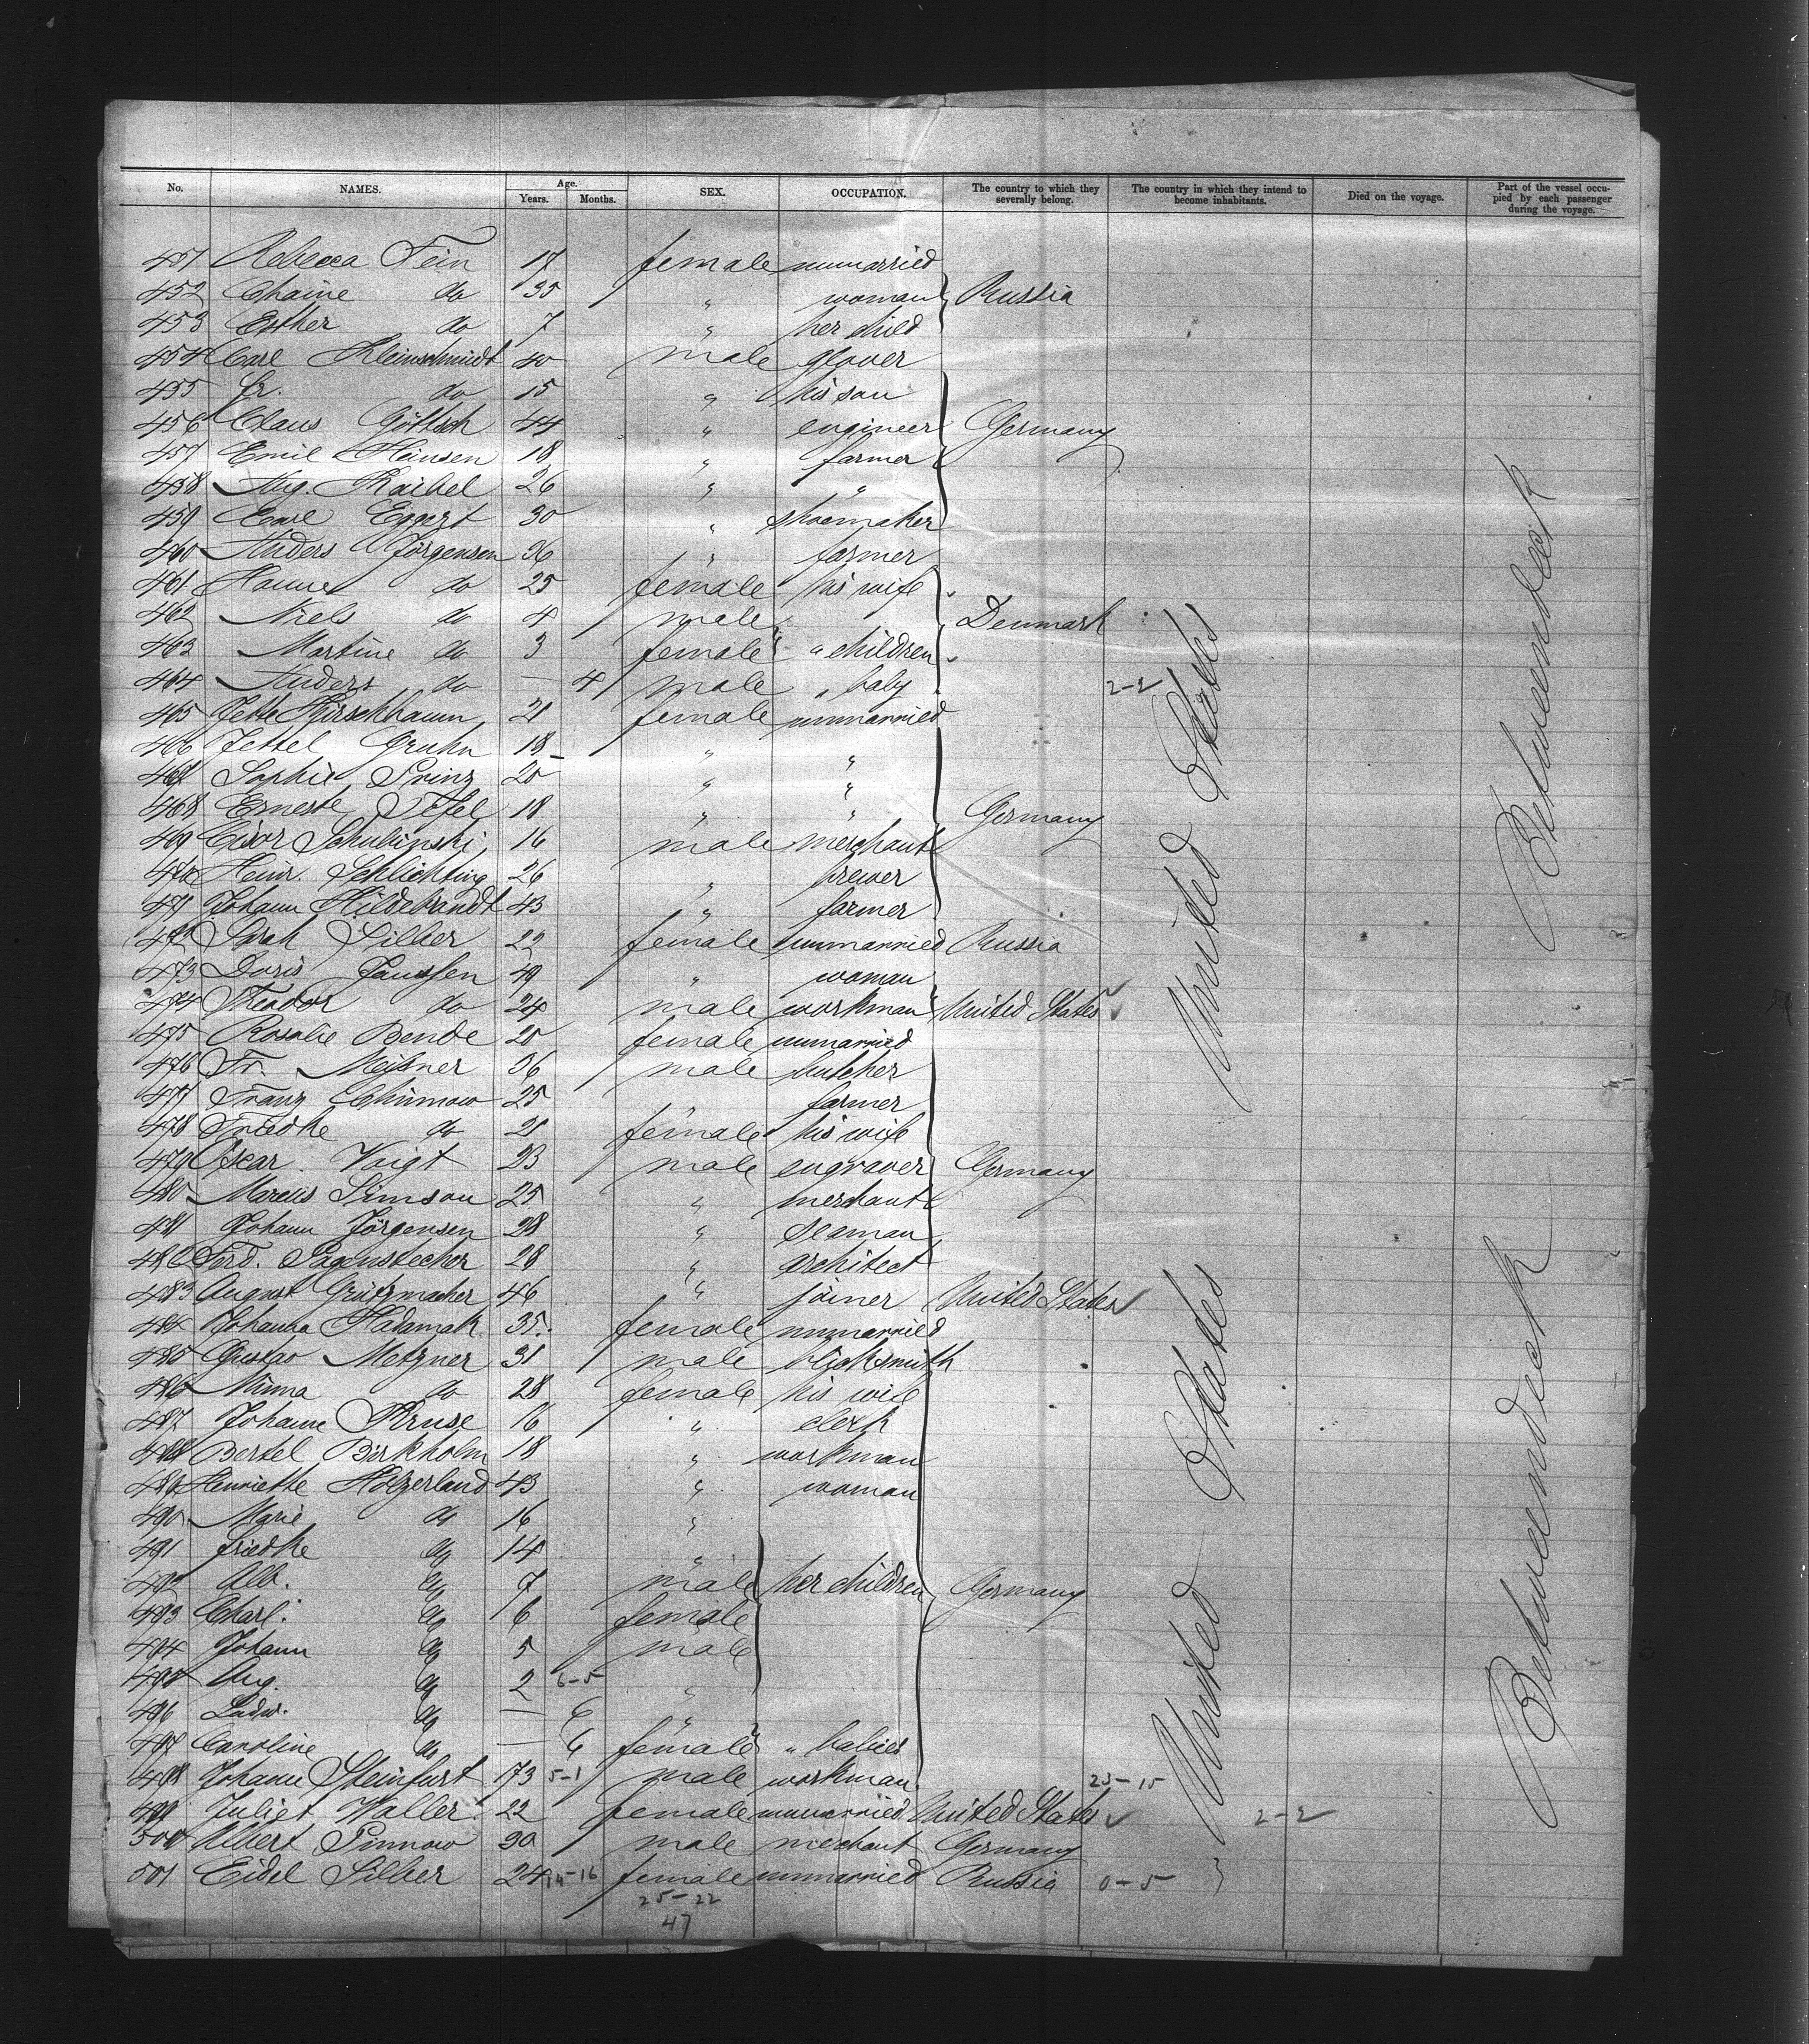 No. NAMES. Age. Years. Months. SEX. OCCUPATION. The country to which they severally belong. The country in which they intend to become inhabitants. Died on the voyage. Part of the vessel occupied by each passenger during the voyage.
451 Rebecca Fein 17 female unmarried
452 Chaine do 35 " woman Russia
453 Esther do 7 " her child
454 Carl Kleinschmidt 40 male glover
455 Fr. do 15 " his son
456 Claus Göttsch 44 " engineer Germany
457 Emil Heinsen 18 " farmer
458 Aug. Kaibel 26 " "
459 Carl Eggert 30 " shoemaker
460 Anders Jörgensen 36 " farmer
461 Hanne do 25 female his wife
462 Niels do 4 male Denmark
463 Martine do 3 female " children
464 Anders do — 4 male " baby 2-2
465 Jette Hirschbaum 21 female unmarried
466 Jettel Gruhn 18 " "
467 Sophie Prinz 20 " "
468 Erneste 18 " " Germany
469 Schubinski 16 male merchant
470 Heinr. Schlichting 26 " brewer
471 Johann Hildebrandt 43 " farmer
472 Sarah Silber 22 female unmarried Russia
473 Doris Janssen 49 " woman
474 Theodor do 24 male workman United States
475 Rosalie Bende 20 female unmarried
476 Fr. Meißner 36 male butcher
477 Franz 25 " farmer
478 Friedke do 21 female his wife
479 Oscar Voigt 23 male engraver Germany
480 Marcus Simson 25 " merchant
481 Johann Jörgensen 28 " seaman
482 Ferd. Pagenstecher 28 " architect
483 August Grützmacher 46 " joiner United States
484 Johanna Hadamak 35 female unmarried
485 Gustav Metzner 31 male blacksmith
486 Minna do 28 female his wife
487 Johann Kruse 16 " clerk
488 Bertel Birkholm 18 " workman
489 Henriette Holzerland 43 " woman
490 Marie do 16 "
491 Friedke do 14 "
492 Alb. do 7 male her children Germany
493 Charl. do 6 female
494 Johann do 5 male
495 Aug. do 2 6-5 "
496 Ludw. do — 6 "
497 Caroline do — 6 female " babies
498 Johann Steinfurt 73 5-1 male workman 25-15
499 Juliet Waller 22 female unmarried United States 2-2
500 Albert Pinnow 30 male merchant Germany
501 Eidel Silber 24 14-16 female unmarried Russia 0-5
25-22
47
United States
United States
Betweendeck
Betweendeck